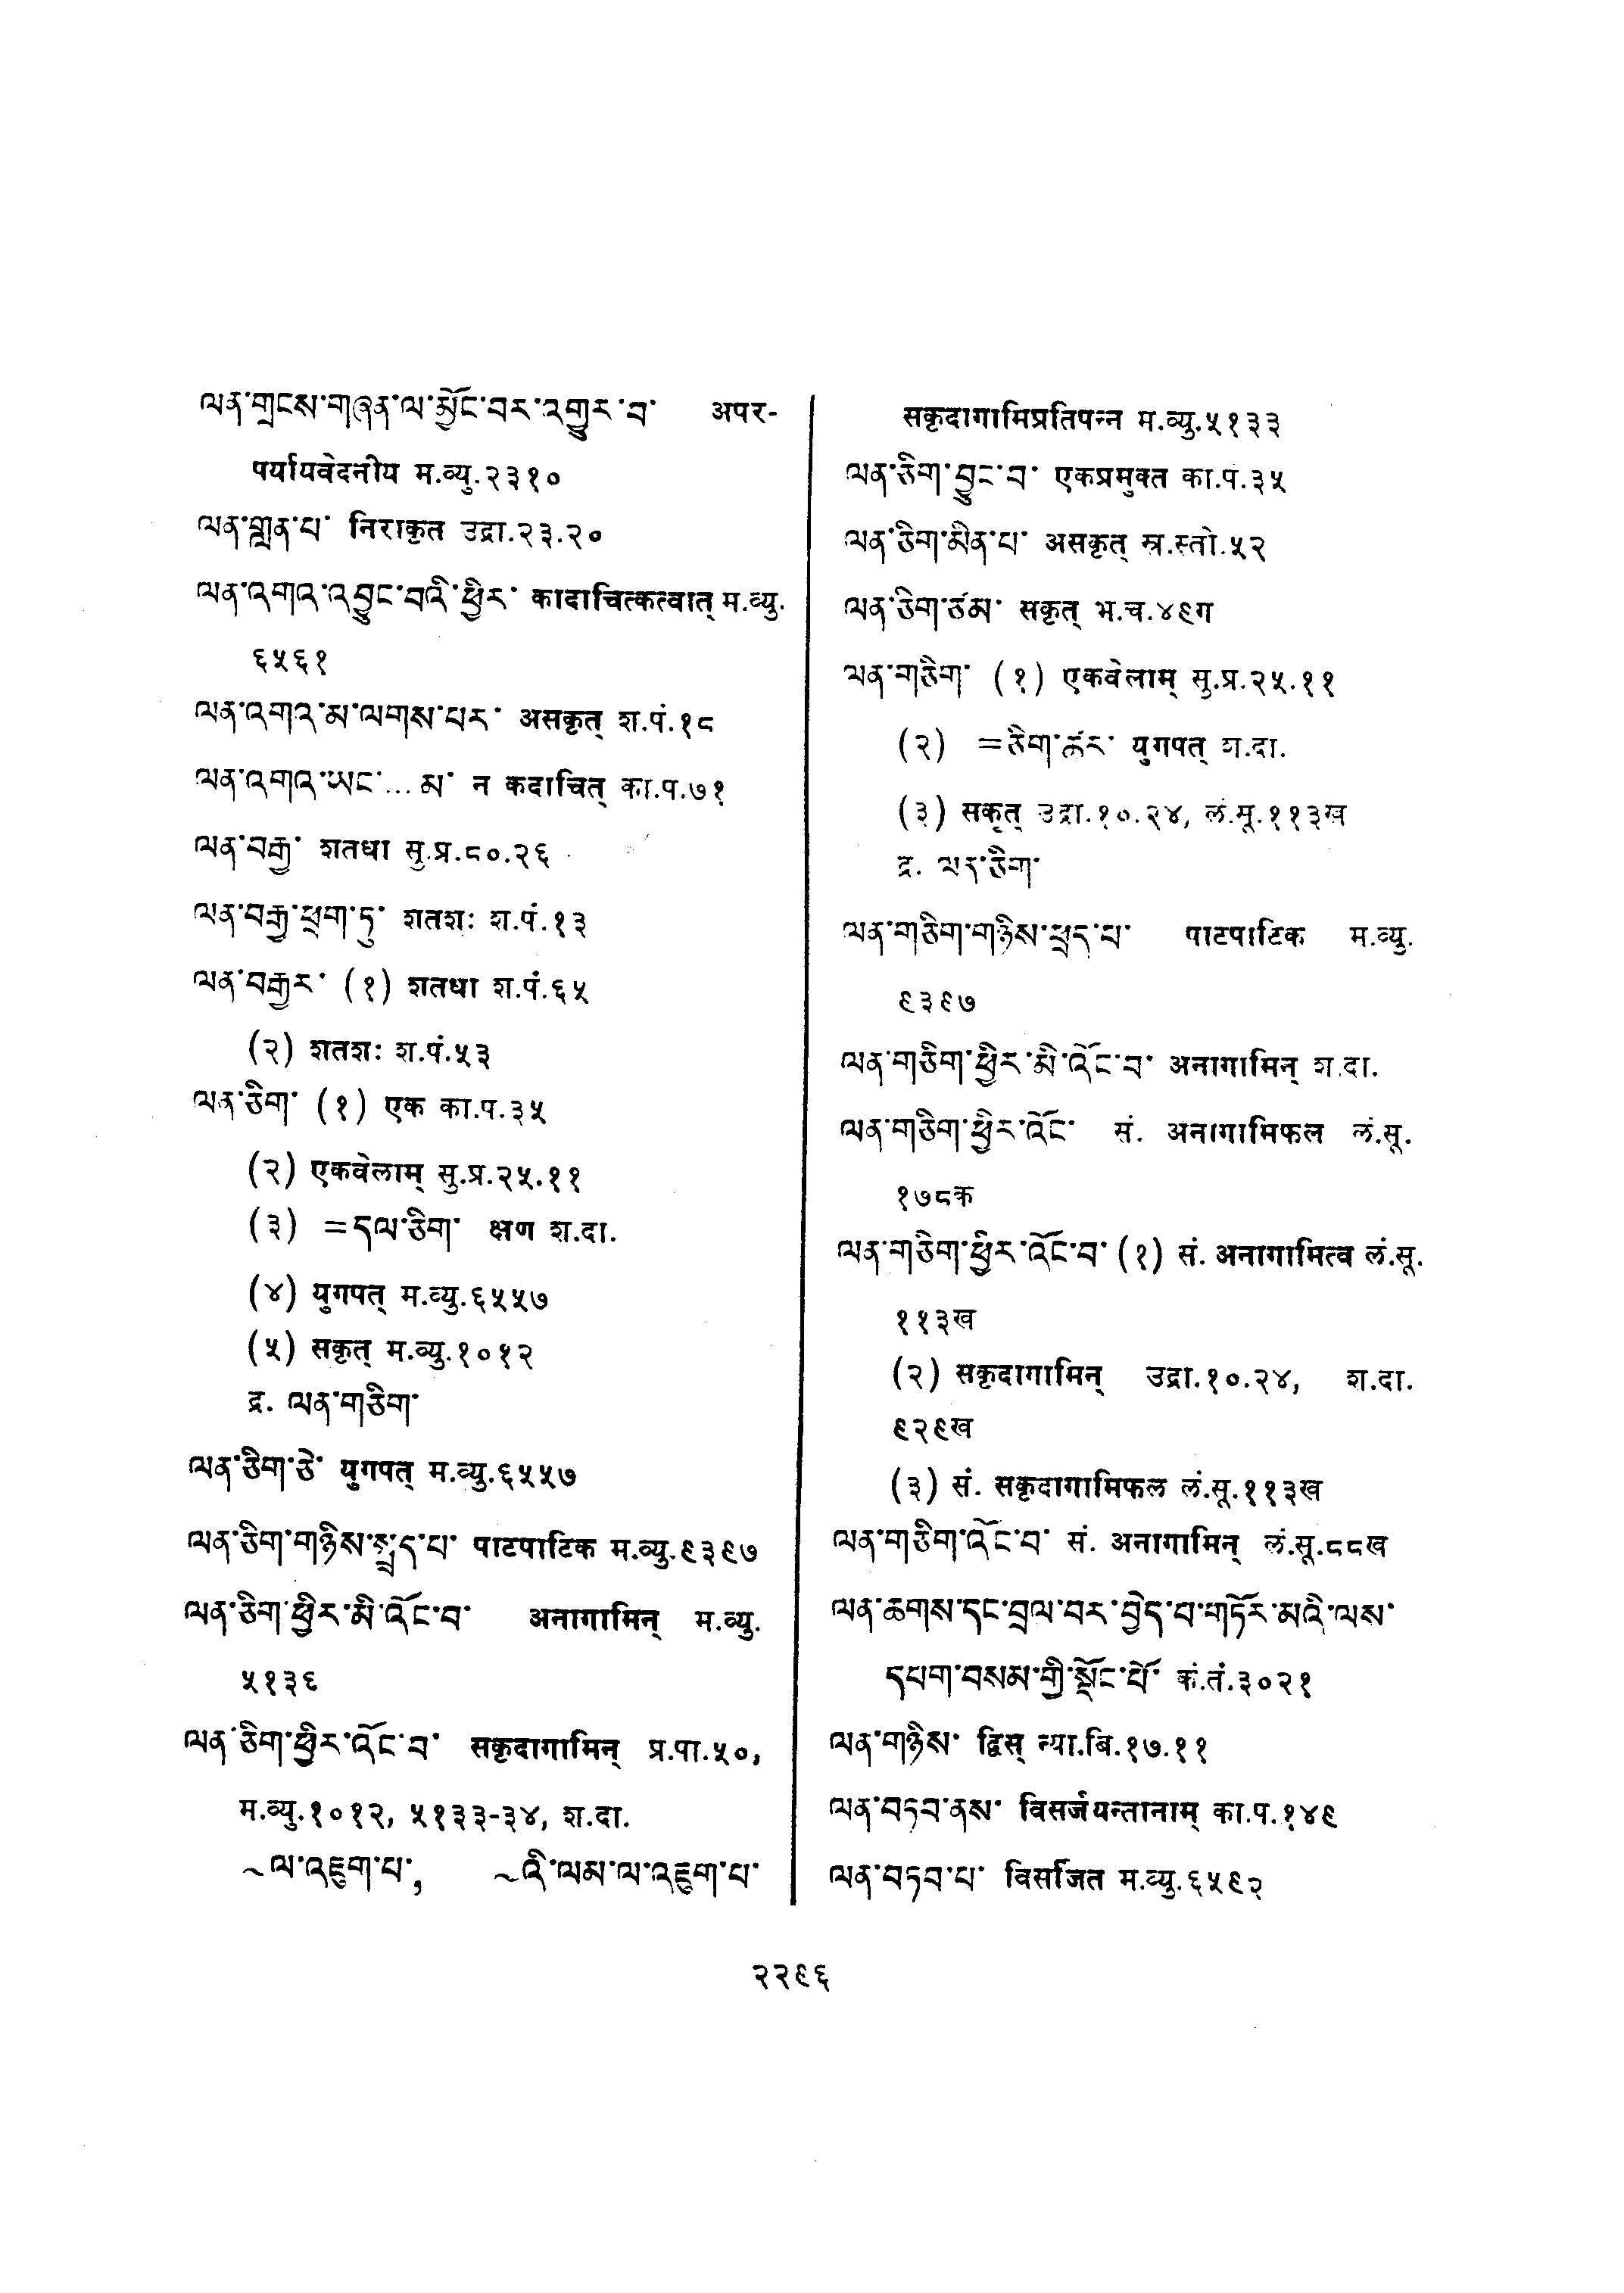 ལན་གྲངས་གཞན་ལ་མྱོང་བར་འགྱུར་བ་ अपर-
पर्यायवेदनीय म.व्यु.२३१०
ལན་གླན་པ་ निराकृत उद्रा.२३.२०
ལན་འགའ་འབྱུང་བའི་ཕྱིར་ कादाचित्कत्वात् म.व्यु.
६५६१
ལན་འགའ་མ་ལགས་པར་ असकृत् श.पं.१८
ལན་འགའ་ཡང་...མ་ न कदाचित् का.प.७१
ལན་བརྒྱ་ शतधा सु.प्र.८०.२६
ལན་བརྒྱ་ཕྲག་ཏུ་ शतशः श.पं.१३
ལན་བརྒྱར་ (१) शतधा श.पं.६५
(२) शतशः श.पं.५३
ལན་ཅིག་ (१) एक का.प.३५
(२) एकवेलाम् सु.प्र.२५.११
(३) =དལ་ཅིག་ क्षण श.दा.
(४) युगपत् म.व्यु.६५५७
(५) सकृत् म.व्यु.१०१२
द्र. ལན་གཅིག་
ལན་ཅིག་ཅེ་ युगपत् म.व्यु.६५५७
ལན་ཅིག་གཉིས་སྤྲད་པ་ पाटपाटिक म.व्यु.९३९७
ལན་ཅིག་ཕྱིར་མི་འོང་བ་ अनागामिन् म.व्यु.
५१३६
ལན་ཅིག་ཕྱིར་འོང་བ་ सकृदागामिन् प्र.पा.५०,
म.व्यु.१०१२, ५१३३-३४, श.दा.
~ལ་འཇུག་པ་, ~འི་ལམ་ལ་འཇུག་པ་
सकृदागामिप्रतिपन्न म.व्यु.५१३३
ལན་ཅིག་བྱུང་བ་ एकप्रमुक्त का.प.३५
ལན་ཅིག་མིན་པ་ असकृत् स्र.स्तो.५२
ལན་ཅིག་ཙམ་ सकृत् भ.च.४९ग
ལན་གཅིག་ (१) एकवेलाम् सु.प्र.२५.११
(२) =ཅིག་ཆར་ युगपत् श.दा.
(३) सकृत् उद्रा.१०.२४, लं.सू.११३ख
द्र. ལན་ཅིག་
ལན་གཅིག་གཉིས་ཕྲད་པ་ पाटपाटिक म.व्यु.
९३९७
ལན་གཅིག་ཕྱིར་མི་འོང་བ་ अनागामिन् श.दा.
ལན་གཅིག་ཕྱིར་འོང་ सं. अनागामिफल लं.सू.
१७८क
ལན་གཅིག་ཕྱིར་འོང་བ་ (१) सं. अनागामित्व लं.सू.
११३ख
(२) सकृदागामिन् उद्रा.१०.२४, श.दा.
९२९ख
(३) सं. सकृदागामिफल लं.सू.११३ख
ལན་གཅིག་འོང་བ་ सं. अनागामिन् लं.सू.८८ख
ལན་ཆགས་དང་བྲལ་བར་བྱེད་པ་གཏོར་མའི་ལས་
དཔག་བསམ་གྱི་སྡོང་པོ་ कं.तं.३०२१
ལན་གཉིས་ द्विस् न्या.बि.१७.११
ལན་བཏབ་ནས་ विसर्जयन्तानाम् का.प.१४९
ལན་བཏབ་པ་ विसर्जित म.व्यु.६५९२
२२९६